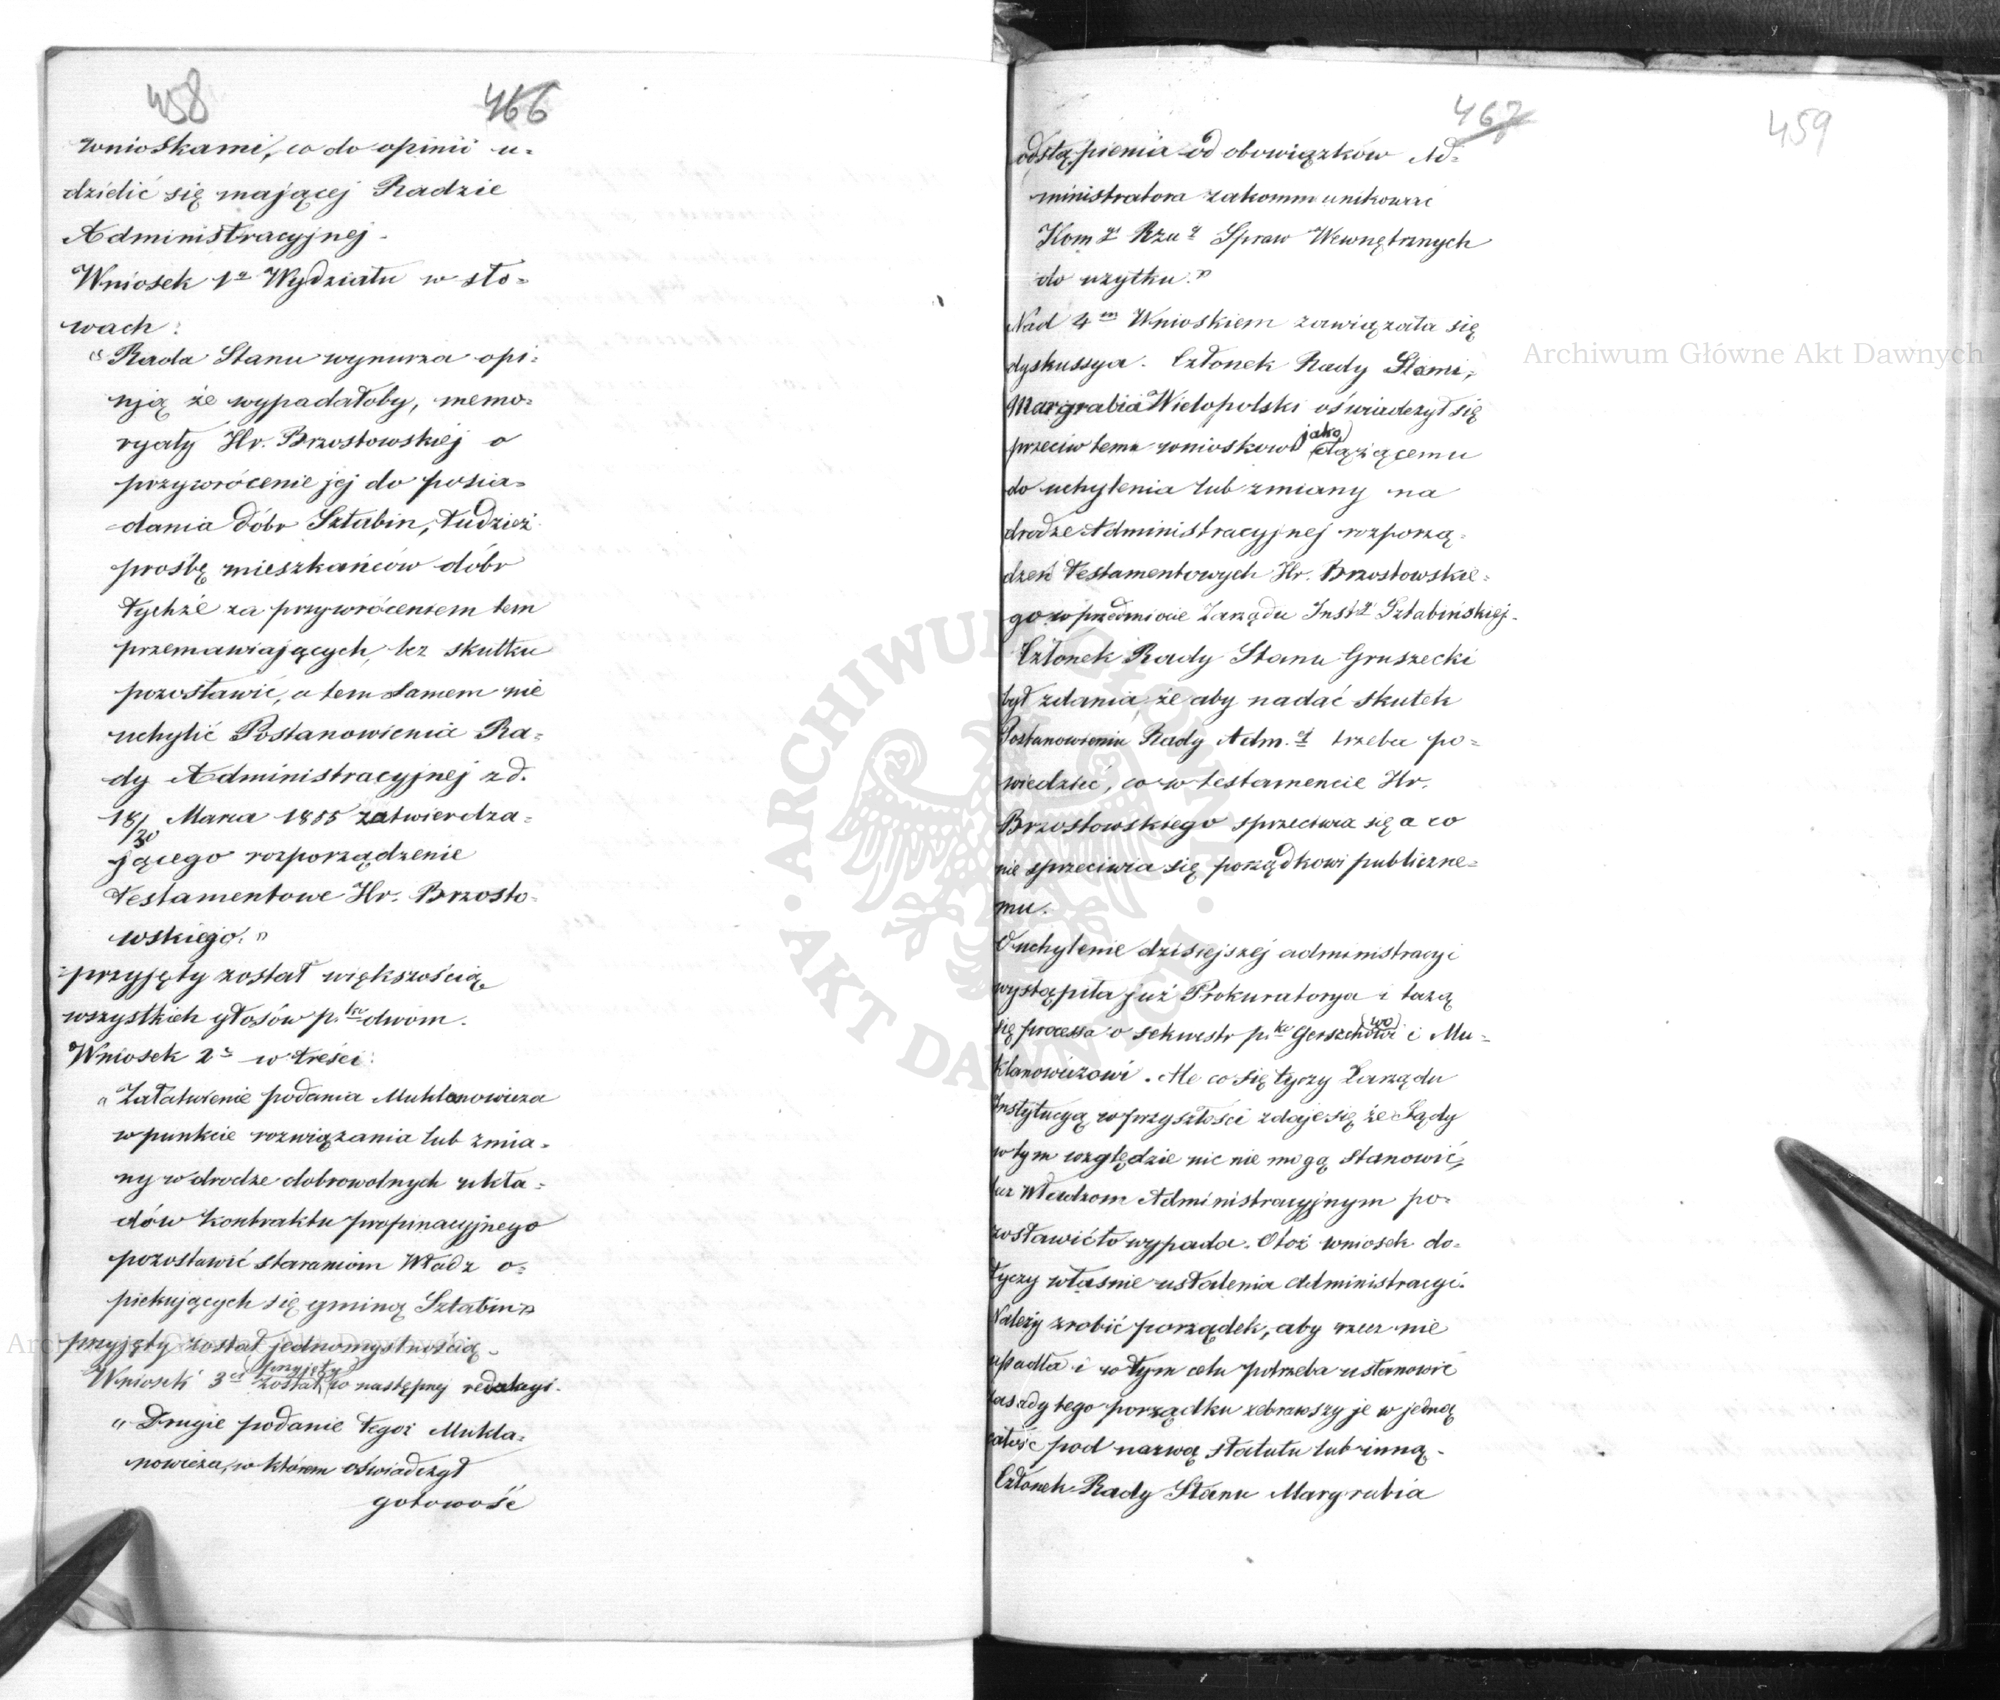 458
466
wnioskami, co do opinii u-
dzielić się mającej Radzie
Administracyjnej.
Wniosek 1y Wydziału w sło-
wach:
"Rada Stanu wynurza opi-
nją że wypadałoby, memo-
ryały Hr. Brzostowskiej o
przywrócenie jej do posia-
dania dóbr Sztabin, tudzież
prośbę mieszkańców dóbr
tychże za przywróceniem tem
przemawiających, bez skutku
pozostawić, a tem samem nie
uchylić Postanowienia Ra-
dy Administracyjnej z d.
18/30 Marca 1855 zatwierdza-
jącego rozporządzenie
testamentowe Hr. Brzosto-
wskiego."
przyjęty został większością
wszystkich głosów p.ko dwom.
Wniosek 2i w treści:
"Załatwienie podania Muklanowicza
w punkcie rozwiązania lub zmia-
ny w drodze dobrowolnych ukła-
dów kontraktu propinacyjnego
pozostawić staraniom Władz o-
piekujących się gminą Sztabin"
przyjęty został jednomyślnością.
Wniosek 3ci został (przyjęty) w następnej redakcyi.
"Drugie podanie tegoż Mukla-
nowicza, w którem oświadczył
gotowość
467
459
odstąpienia od obowiązków Ad-
ministratora zakommunikować
Kom.yi Rzu.y Spraw Wewnętrznych
do użytku."
Nad 4m Wnioskiem zawiązała się
dyskussya. Członek Rady Stanu,
Margrabia Wielopolski oświadczył się
przeciw temu wnioskowi (jako) dążącemu
do uchylenia lub zmiany na
drodze Administracyjnej rozporzą-
dzeń testamentowych Hr. Brzostowskie-
go w przedmiocie Zarządu Inst.yi Sztabińskiej.
Członek Rady Stanu Gruszecki
był zdania, że aby nadać skutek
Postanowieniu Rady Adm.ej trzeba po-
wiedzieć, co w testamencie Hr.
Brzostowskiego sprzeciwia się a co
nie sprzeciwia się porządkowi publiczne-
mu.
O uchylenie dzisiejszej administracyi
wystąpiła już Prokuratorya i toczą
się processa o sekwestr p.ko Gerszchowi (wo) i Mu-
klanowiczowi. Ale co się tyczy Zarządu
Instytucyą w przyszłości zdaje się że Sądy
w tym względzie nic nie mogą stanowić,
lecz Władzom Administracyjnym po-
zostawić to wypada. Otóż wniosek do-
tyczy właśnie ustalenia administracyi.
Należy zrobić porządek, aby rzecz nie
upadła i w tym celu potrzeba ustanowić
zasady tego porządku zebrawszy je w jedną
całość pod nazwą statutu lub inną.
Członek Rady Stanu Margrabia
Archiwum Główne Akt Dawnych
Archiwum Główne Akt Dawnych
ARCHIWUM GŁÓWNE
AKT DAWNYCH